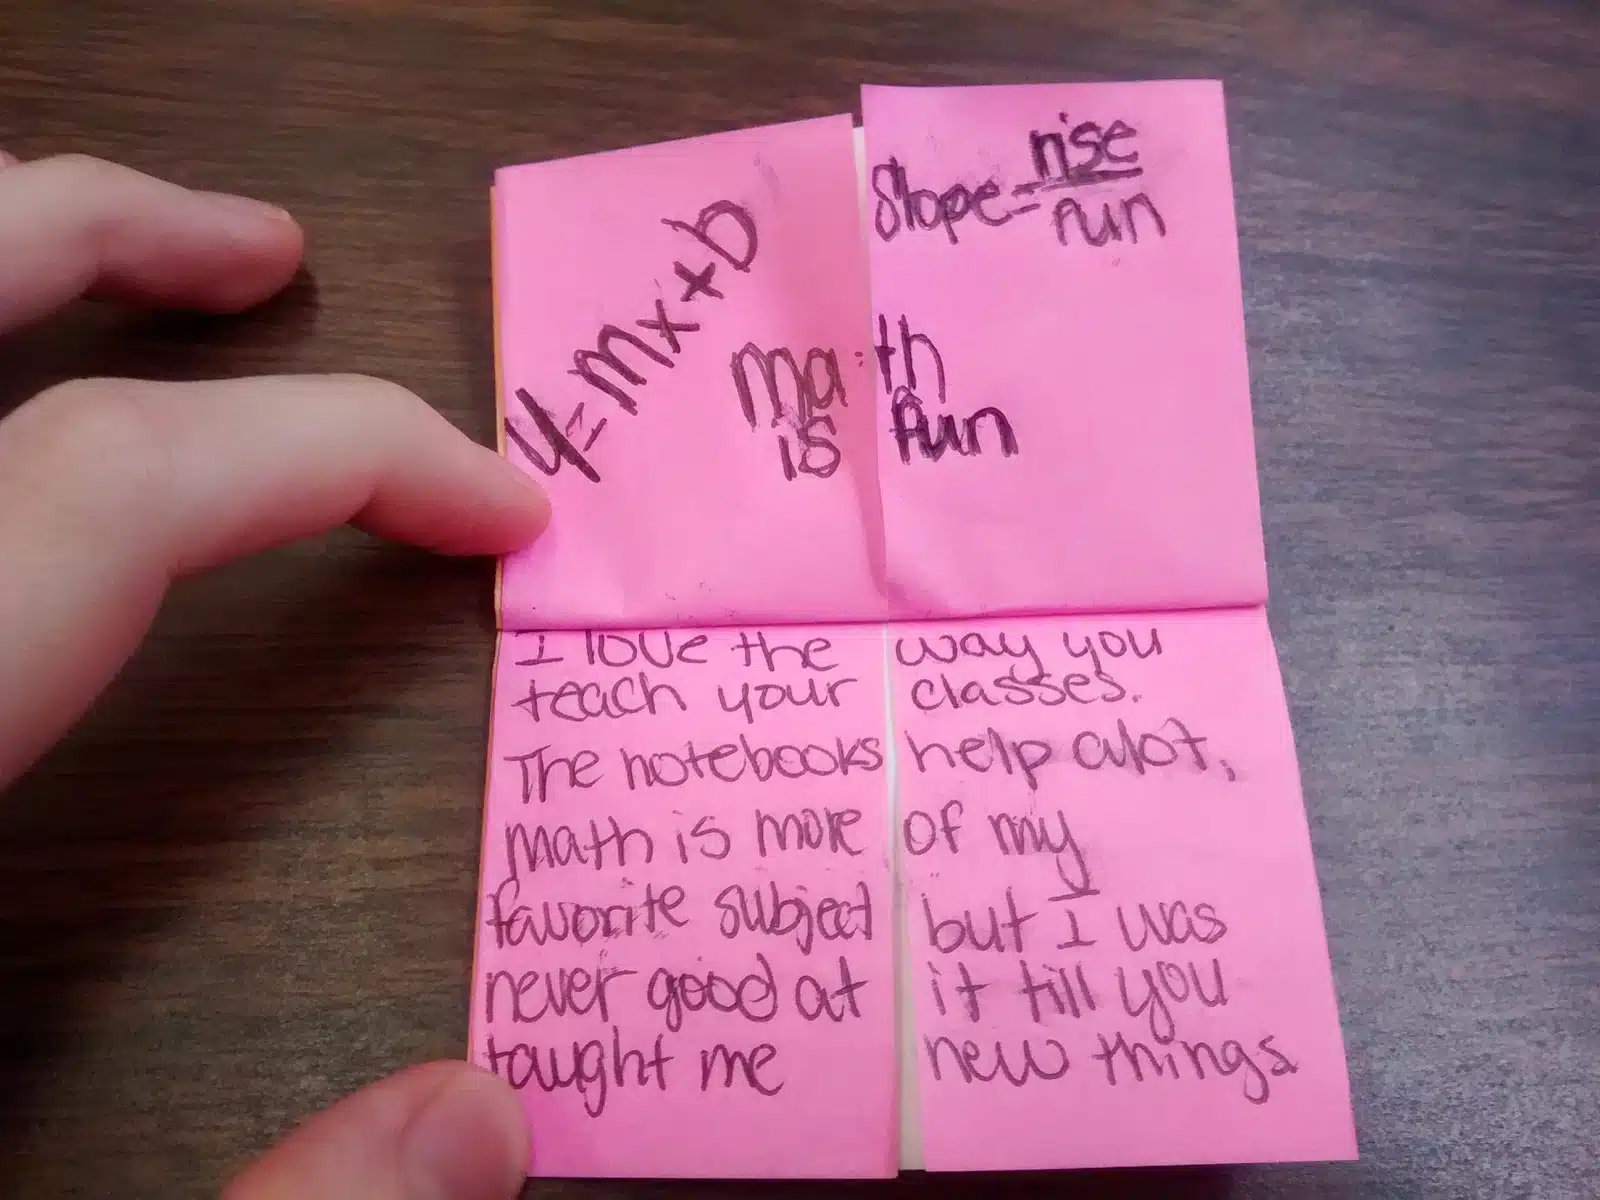 y=mx+b
Slope=rise/run
math
is fun
I love the way you
teach your classes.
The notebooks help alot.
math is more of my
favorite subject but I was
never good at it till you
taught me new things